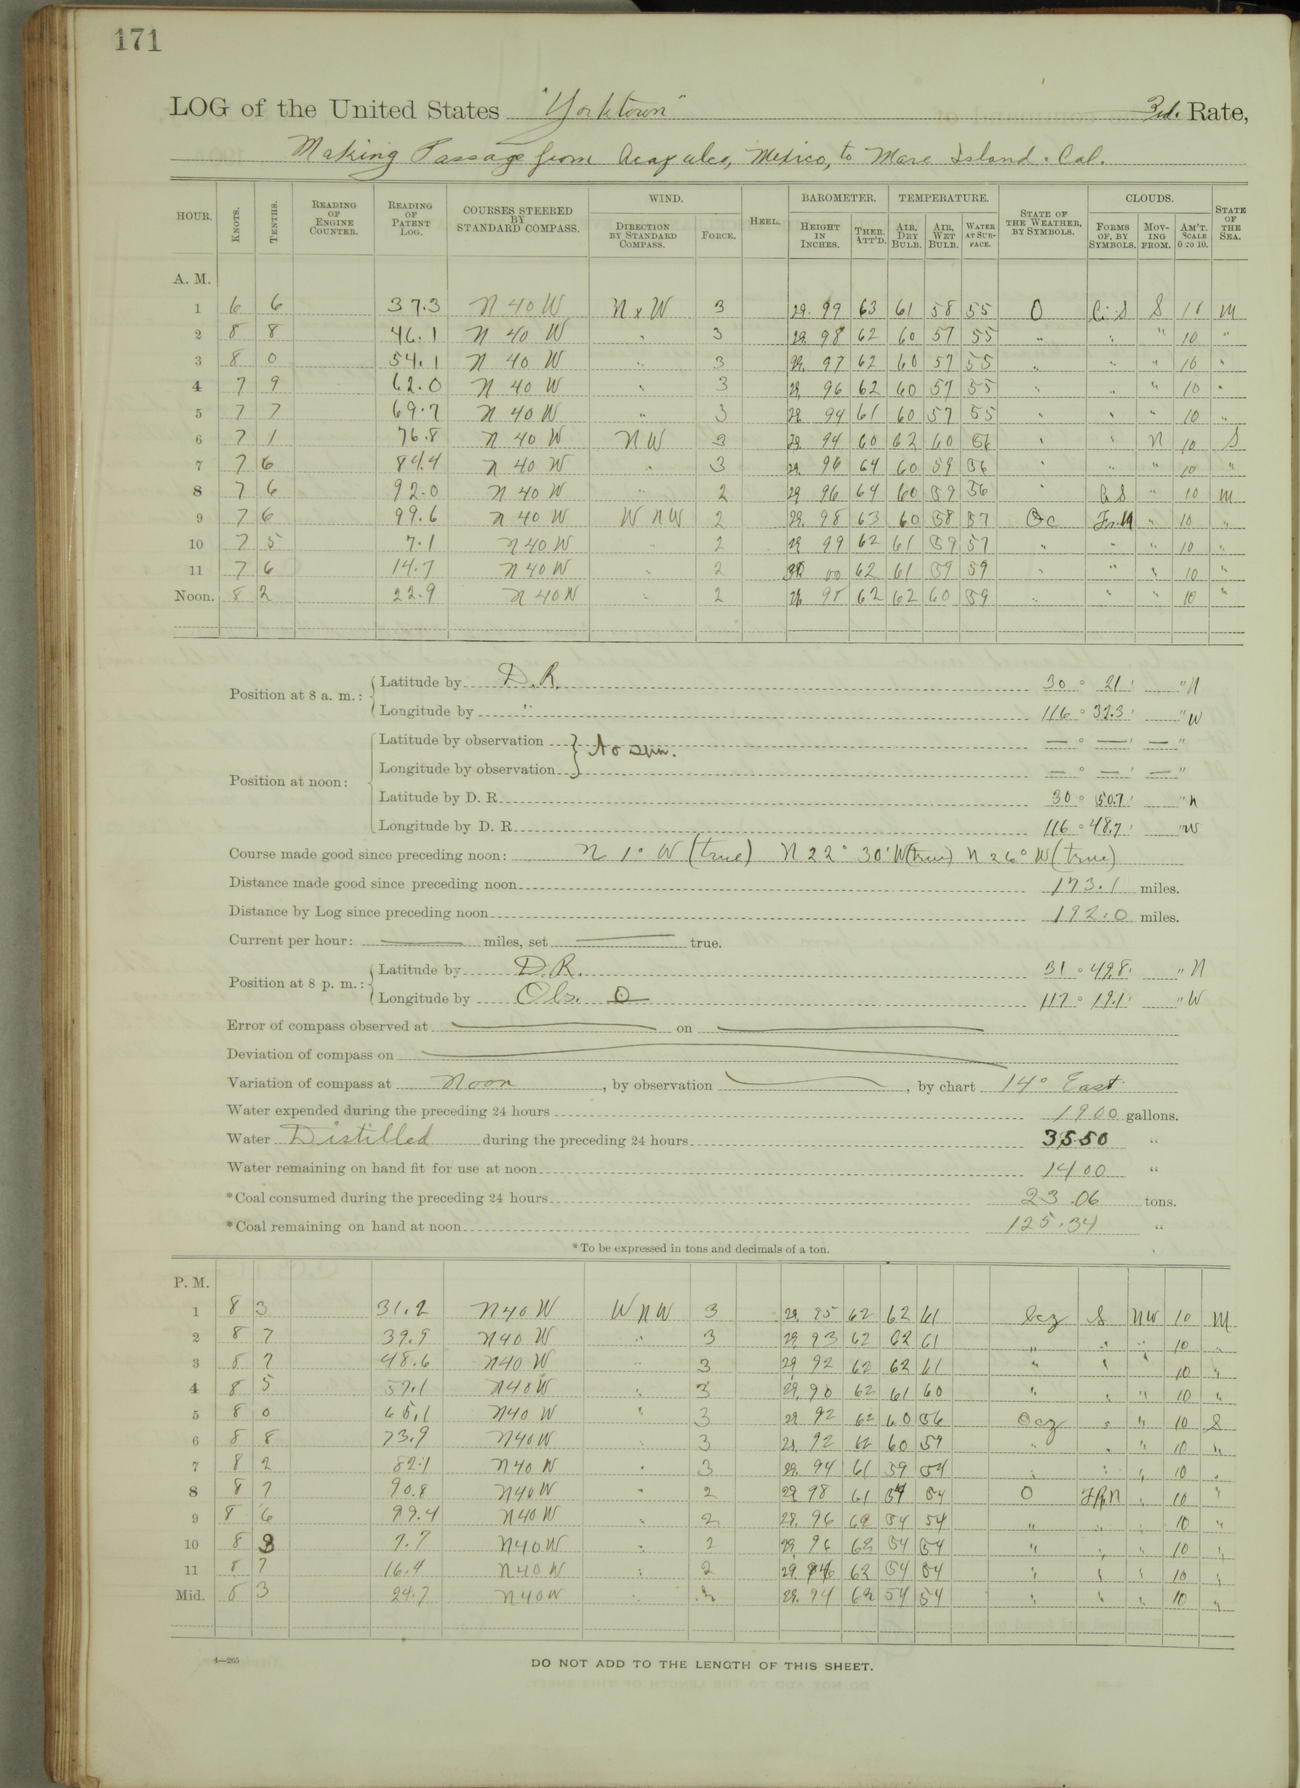 171
LOG of the United States "Yorktown" 3rd. Rate,
Making Passage from Acapulco, Mexico, to Mare Island. Cal.
HOUR. KNOTS. TENTHS. READING OF ENGINE COUNTER. READING OF PATENT LOG. COURSES STEERED BY STANDARD COMPASS. WIND. DIRECTION BY STANDARD COMPASS. FORCE. HEEL. BAROMETER. HEIGHT IN INCHES. THER. ATT'D. TEMPERATURE. AIR, DRY BULB. AIR, WET BULB. WATER AT SURFACE. STATE OF THE WEATHER, BY SYMBOLS. CLOUDS. FORMS OF, BY SYMBOLS. MOVING FROM. AM'T. SCALE 0 TO 10. STATE OF THE SEA.
A. M.
1 6 6 37.3 N 40 W N x W 3 29. 99 63 61 58 55 O S M
2 8 8 46.1 N 40 W " 3 29. 98 62 60 57 55 " " " 10 "
3 8 0 54.1 N 40 W " 3 29. 97 62 60 57 55 " " " 10 "
4 7 9 62.0 N 40 W " 3 29. 96 62 60 57 55 " " " 10 "
5 7 7 69.7 N 40 W " 3 29. 94 61 60 57 55 " " " 10 "
6 7 1 76.8 N 40 W N W 3 29. 94 60 62 60 56 " " N 10 S
7 7 6 84.4 N 40 W " 3 29. 96 64 60 59 56 " " " 10 "
8 7 6 92.0 N 40 W " 2 29. 96 64 60 59 56 " " 10 M
9 7 6 99.6 N 40 W W N W 2 29. 98 63 60 58 57 " 10 "
10 7 5 7.1 N 40 W " 2 29. 99 62 61 59 57 " " " 10 "
11 7 6 14.7 N 40 W " 2 30 00 62 61 59 59 " " " 10 "
Noon. 8 2 22.9 N 40 W " 2 62 62 60 59 " " " 10 "
Position at 8 a. m.: Latitude by D. R. 30 ° 21 ' " N
Longitude by " 116 ° 32.3 ' " W
Position at noon: Latitude by observation } No sun. — ° — ' — "
Longitude by observation — ° — ' — "
Latitude by D. R. 30 ° 50.7 ' " N
Longitude by D. R. 116 ° 48.7 ' " W
Course made good since preceding noon: N 1° W (true) N 22° 30' W (true) N 26° W (true)
Distance made good since preceding noon 173.1 miles.
Distance by Log since preceding noon 192.0 miles.
Current per hour: — miles, set — true.
Position at 8 p. m.: Latitude by D. R. 31 ° 49.8 ' " N
Longitude by Obs. 117 ° 19.1 ' " W
Error of compass observed at — on —
Deviation of compass on —
Variation of compass at Noon , by observation — , by chart 14° East
Water expended during the preceding 24 hours 1900 gallons.
Water Distilled during the preceding 24 hours 3550 "
Water remaining on hand fit for use at noon 1400 "
*Coal consumed during the preceding 24 hours 23.06 tons.
*Coal remaining on hand at noon 125.34 "
*To be expressed in tons and decimals of a ton.
P. M.
1 8 3 31.2 N 40 W W N W 3 29. 95 62 62 61 S NW 10 M
2 8 7 39.9 N 40 W " 3 29. 93 62 62 61 " " " 10 "
3 8 7 48.6 N 40 W " 3 29. 92 62 62 61 " " " 10 "
4 8 5 57.1 N 40 W " 3 29. 90 62 61 60 " " " 10 "
5 8 0 65.1 N 40 W " 3 29. 92 62 60 56 " " 10 S
6 8 8 73.9 N 40 W " 3 29. 92 62 60 59 " " " 10 "
7 8 2 82.1 N 40 W " 3 29. 94 61 59 54 " " " 10 "
8 8 7 90.8 N 40 W " 2 29. 98 61 54 54 O " 10 "
9 8 6 99.4 N 40 W " 2 29. 96 62 54 54 " " " 10 "
10 8 3 7.7 N 40 W " 2 29. 96 62 54 54 " " " 10 "
11 8 7 16.4 N 40 W " 2 29. 62 54 54 " " " 10 "
Mid. 8 3 24.7 N 40 W " 29. 94 62 54 54 " " " 10 "
4—265
DO NOT ADD TO THE LENGTH OF THIS SHEET.